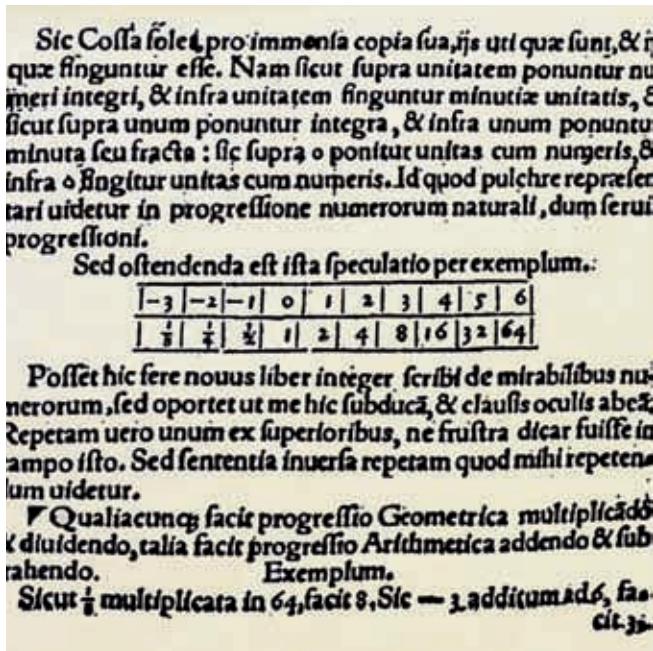 Sic Cossa solet, pro immensa copia sua, ijs uti quæ sunt, & ij
quæ finguntur esse. Nam sicut supra unitatem ponuntur nu
meri integri, & infra unitatem finguntur minutiæ unitatis, &
sicut supra unum ponuntur integra, & infra unum ponuntu
minuta seu fracta: sic supra 0 ponitur unitas cum numeris, &
infra 0 fingitur unitas cum numeris. Id quod pulchre repræsen
tari uidetur in progressione numerorum naturali, dum serui
progressioni.
Sed ostendenda est ista speculatio per exemplum.:
|-3|-2|-1|0|1|2|3|4|5|6|
|1/8|1/4|1/2|1|2|4|8|16|32|64|
Posset hic fere nouus liber integer scribi de mirabilibus nu-
merorum, sed oportet ut me hic subducã, & clausis oculis abeã.
Repetam uero unum ex superioribus, ne frustra dicar fuisse in
ampo isto. Sed sententia inuersa repetam quod mihi repeten-
lum uidetur.
Qualiacunq; facit progressio Geometrica multiplicãdo
& diuidendo, talia facit progressio Arithmetica addendo & sub
rahendo. Exemplum.
Sicut 1/8 multiplicata in 64, facit 8. Sic — 3 additum ad 6, fa-
cit 3.